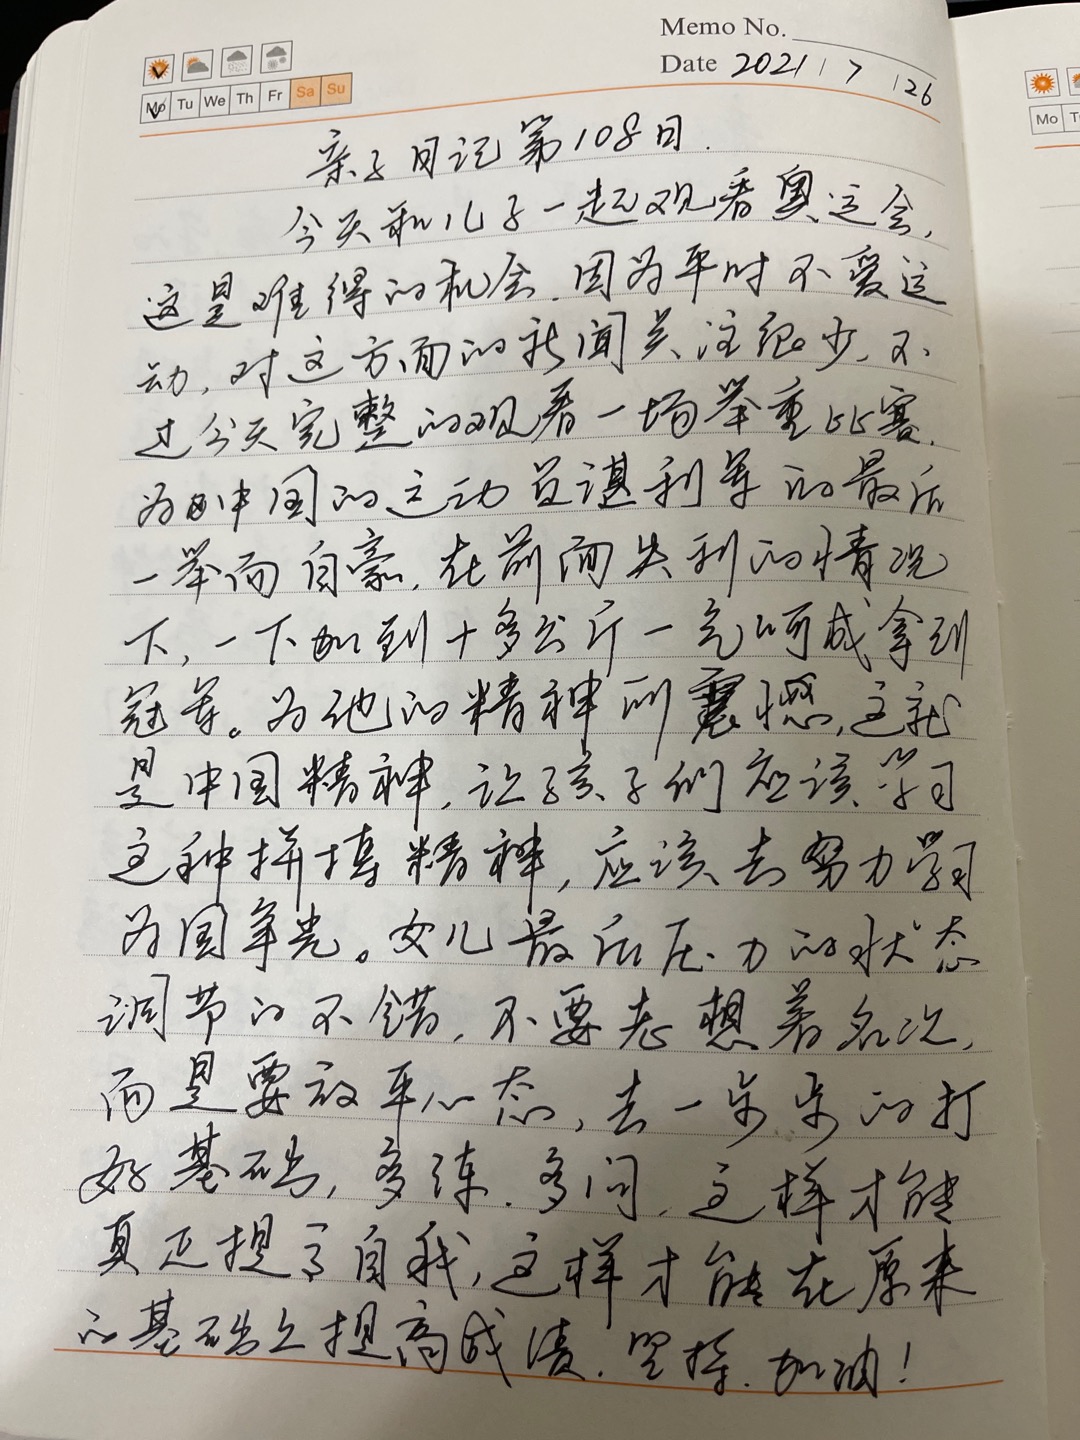 Memo No.
Mo Tu We Th Fr Sa Su
Date 2021 / 7 / 26
亲子日记第108日.
今天和儿子一起观看奥运会,
这是难得的机会.因为平时不爱运
动,对这方面的新闻关注很少,不
过今天完整的观看一场举重比赛.
为中国的运动员谌利军的最后
一举而自豪,在前面失利的情况
下,一下加到十多公斤一气呵成拿到
冠军。为他的精神所震憾,这就
是中国精神,让孩子们应该学习
这种拼搏精神,应该去努力学习
为国争光。女儿最后压力的状态
调节的不错,不要老想着名次,
而是要放平心态,去一步步的打
好基础,多练.多问,这样才能
真正提高自我,这样才能在原来
的基础上提高成绩.坚持.加油!
Mo